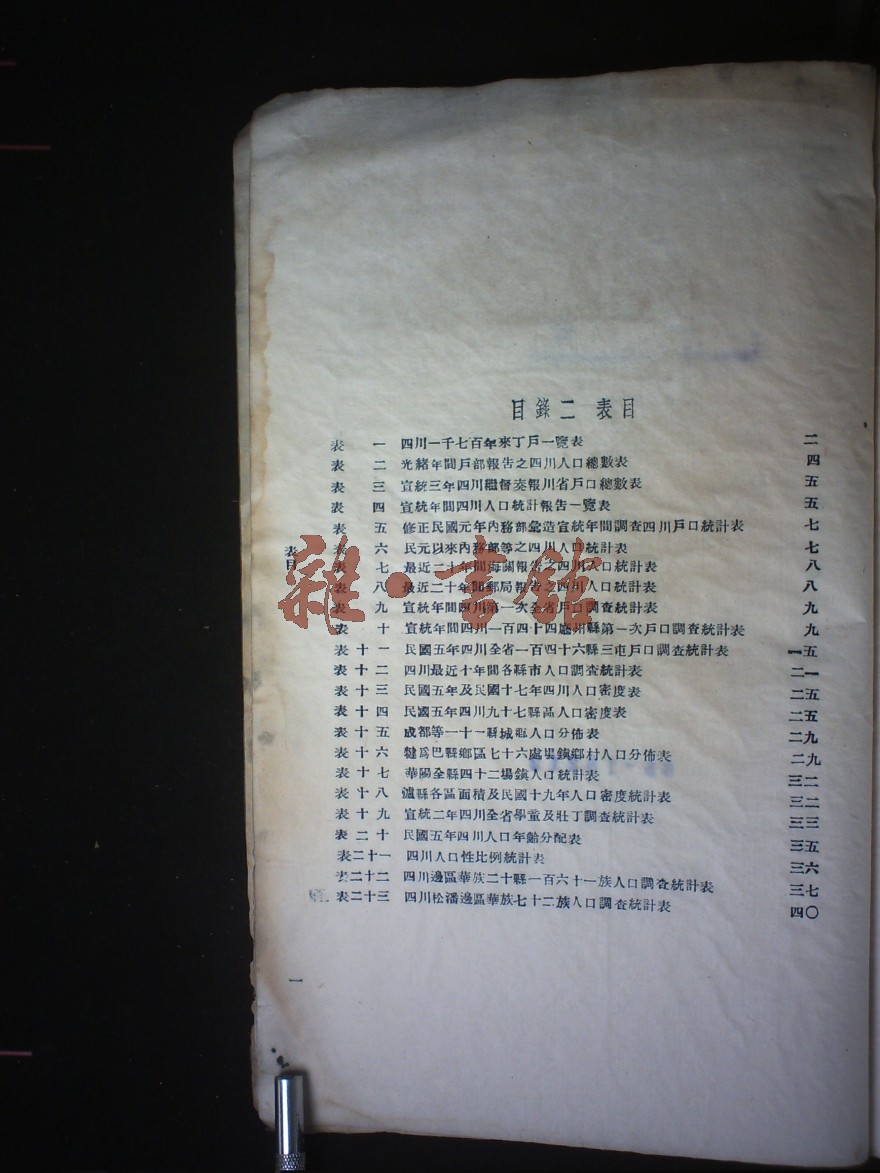 目錄二 表目
表一 四川一千七百年來丁戶一覽表 二
表二 光緒年間戶部報告之四川人口總數表 四
表三 宣統三年四川總督奏報川省戶口總數表 五
表四 宣統年間四川人口統計報告一覽表 五
表五 修正民國元年內務部彙造宣統年間調查四川戶口統計表 七
表六 民元以來內務部等之四川人口統計表 七
表七 最近二十年間海關報告之四川人口表 八
表八 最近二十年間郵局報告之四川人口表 八
表九 宣統年間四川第一次全省戶口調查統計表 九
表十 宣統年間四川一百四十四廳州縣第一次戶口調查統計表 九
表十一 民國五年四川全省一百四十六縣三屯戶口調查統計表 一五
表十二 四川最近十年間各縣市人口調查統計表 二一
表十三 民國五年及民國十七年四川人口密度表 二五
表十四 民國五年四川九十七縣區人口密度表 二五
表十五 成都等一十一縣城廂人口分佈表 二九
表十六 犍爲巴縣鄉區七十六處場鎮鄉村人口分佈表 二九
表十七 華陽全縣四十二場鎮人口統計表 三二
表十八 瀘縣各區面積及民國十九年人口密度統計表 三二
表十九 宣統二年四川全省學童及壯丁調查統計表 三三
表二十 民國五年四川人口年齡分配表 三五
表二十一 四川人口性比例統計表 三六
表二十二 四川邊區華族二十縣一百六十一族人口調查統計表 三七
表二十三 四川松潘邊區華族七十二族人口調查統計表 四〇
表目
一
雜·書館